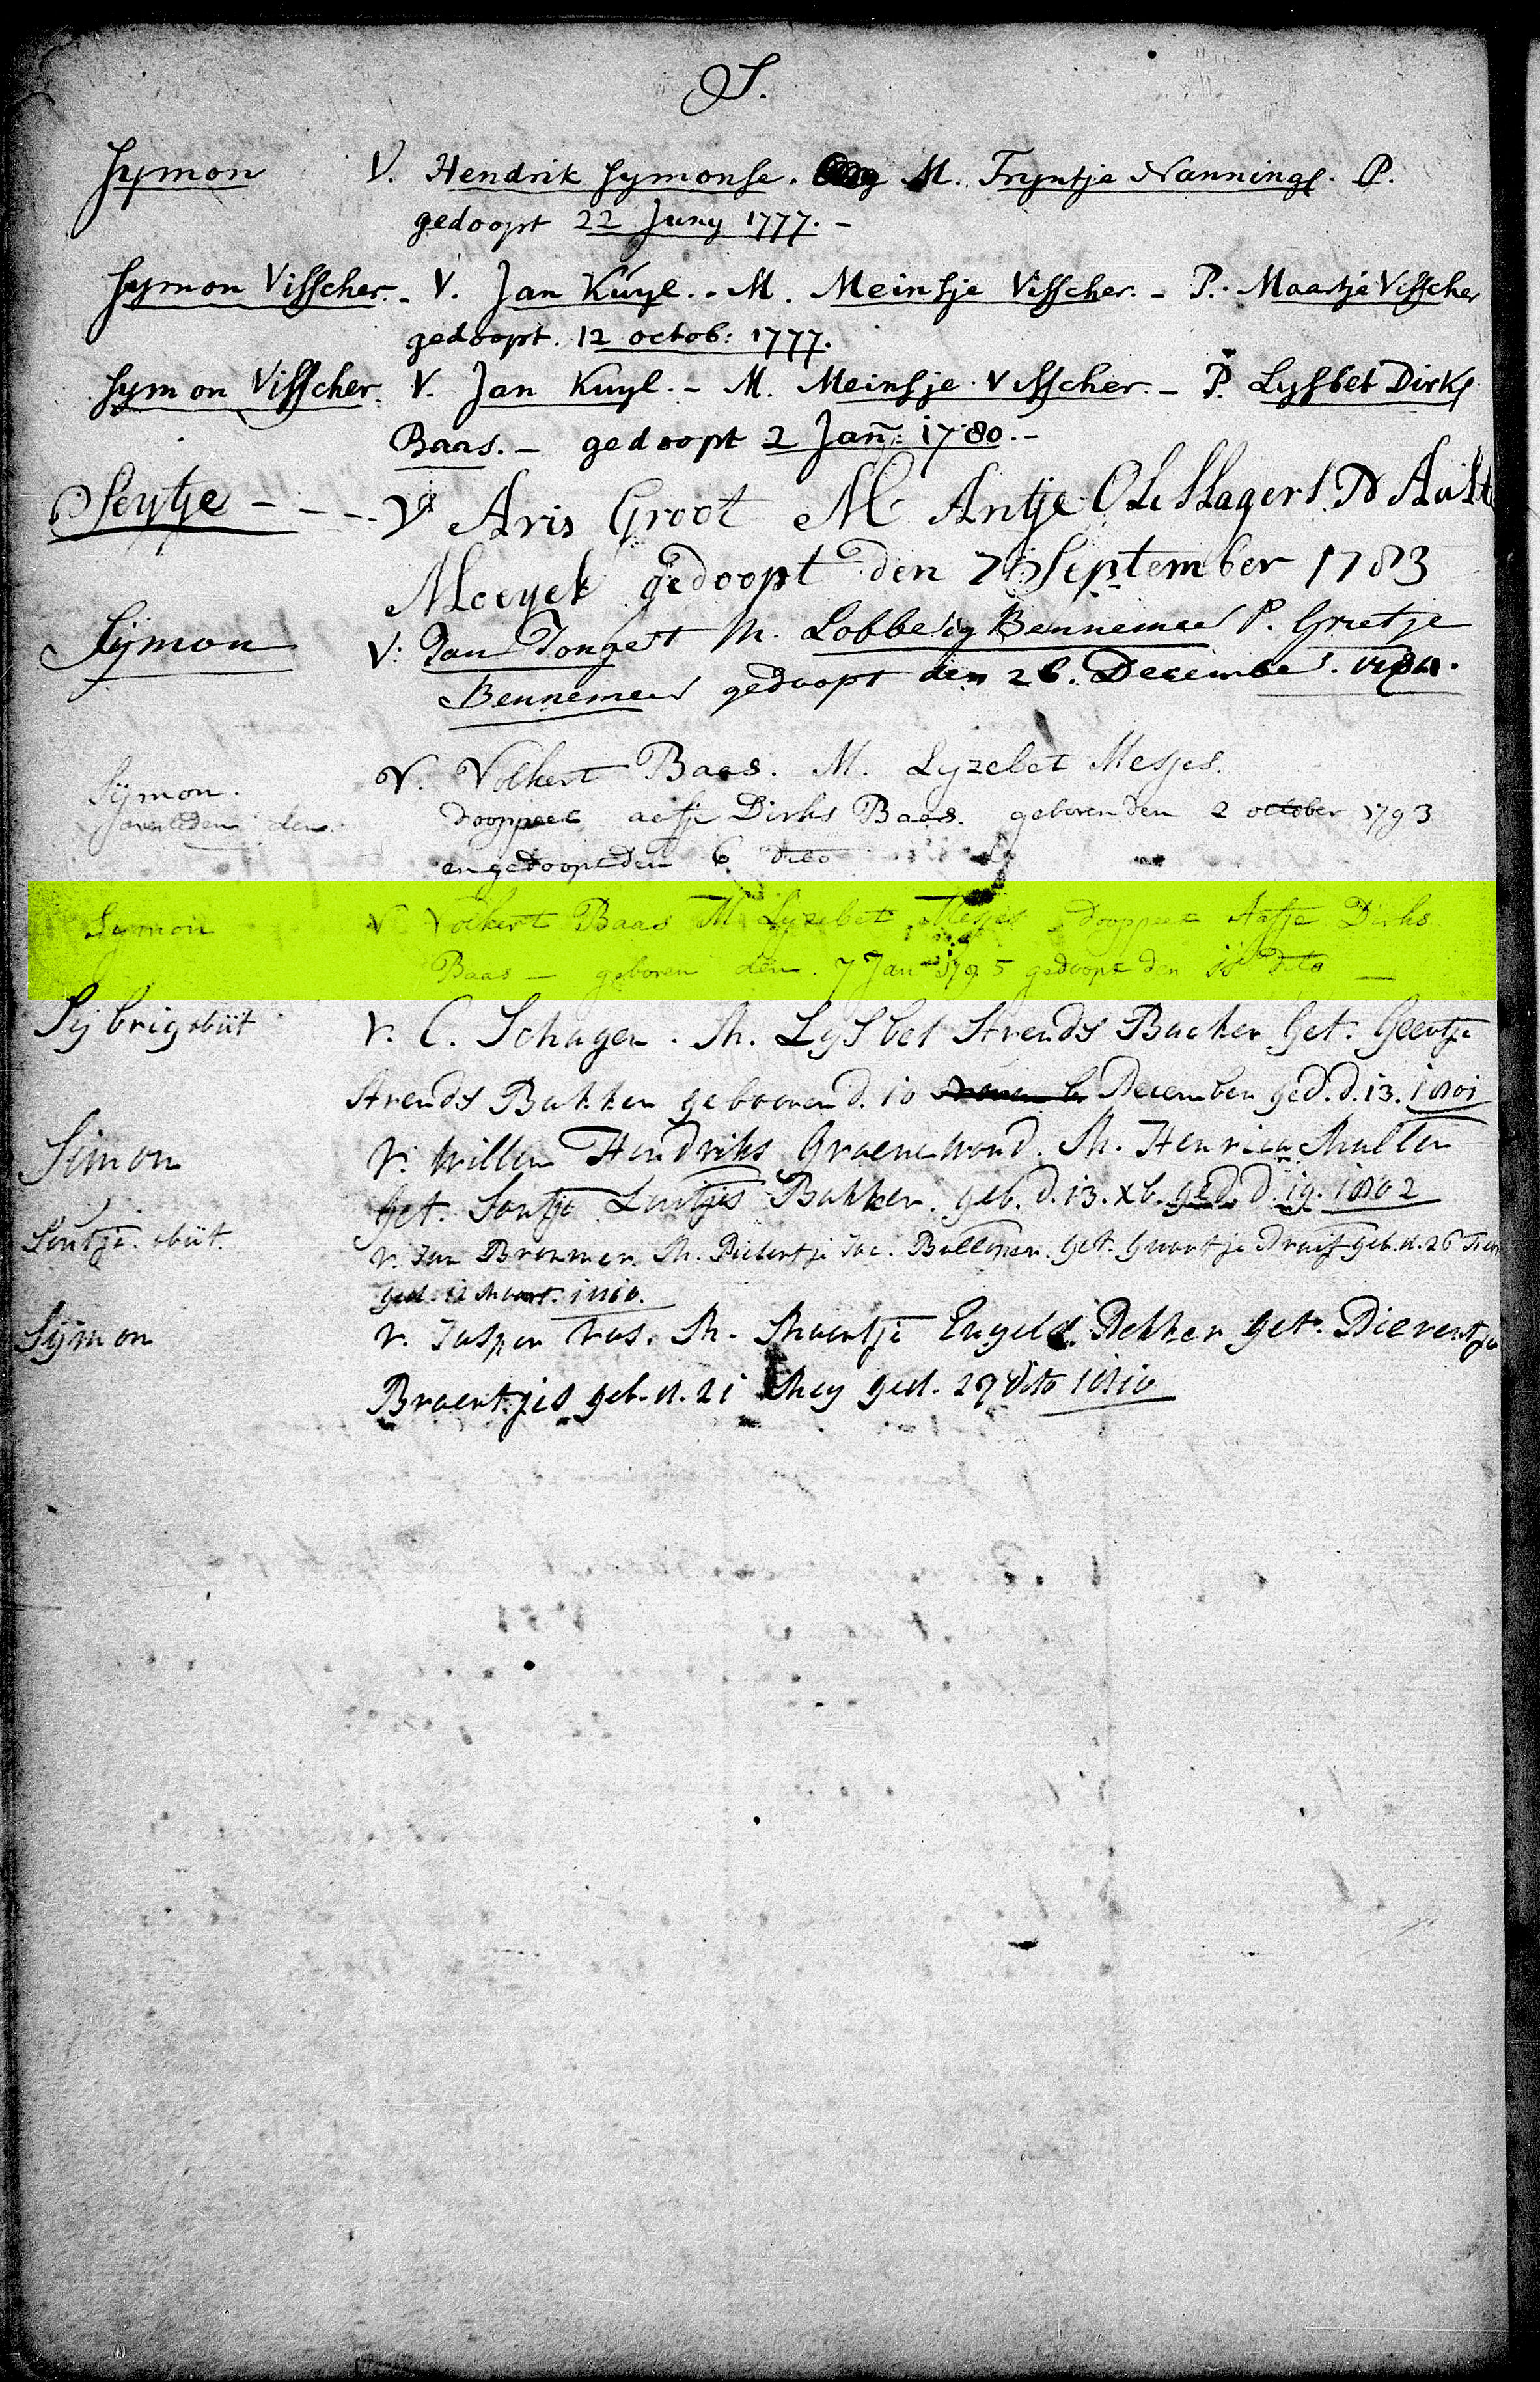 S.
Symon V. Hendrik Symonse. M. Tryntje Nannings. P.
gedoopt 22 Juny 1777. -
Symon Visscher. - V. Jan Kuyl. - M. Meinsje Visscher. - P. Maartje Visscher
gedoopt. 12 octob: 1777.
Symon Visscher. V. Jan Kuyl. - M. Meinsje Visscher. - P. Lysbet Dirks
Baas. - gedoopt 2 Jan: 1780. -
Seytje - - - V Aris Groot M Antje OLiSLagers P
gedoopt den 7 September 1783
Sijmon V: Jan Jongert M. Lobberig Bennemeer P. Grietje
Bennemeer gedoopt den 26. December. 1784.
Sijmon. V. Volkert Baas. M. Lyzebet Mesjes.
overleden den. Dooppeet aefje Dirks Baas. geboren den 2 october 1793
en gedoopt den 6 dito
Symon V Volkert Baas M Lyzebet Mesjes Dooppeet Aafje Dirks
Baas - geboren den. 7 Jan 1795 gedoopt den 11 dito -
Sijbrig obiit V. C. Schagen. M. Lysbet Arends Backer Get. Geertje
Arends Bakker gebooren d. 10 December ged. d. 13. 1801
Simon V. Willem Hendriks Groenewoud. M. Henrica Muller
Get. Soutje Luitjes Bakker. geb. d. 13. Xb. ged. d. 19. 1802
Soutje. obiit. V. Jan Brammer. M. Pietertje Jac. Get. Guurtje geb. d. 26
ged. 12 Maart. 1810.
Sijmon V. Jasper Vas. M. Maartje Engels. Dekker get. Dieventje
Broertjes geb. d. 21 Mey ged. 29 dito 1810